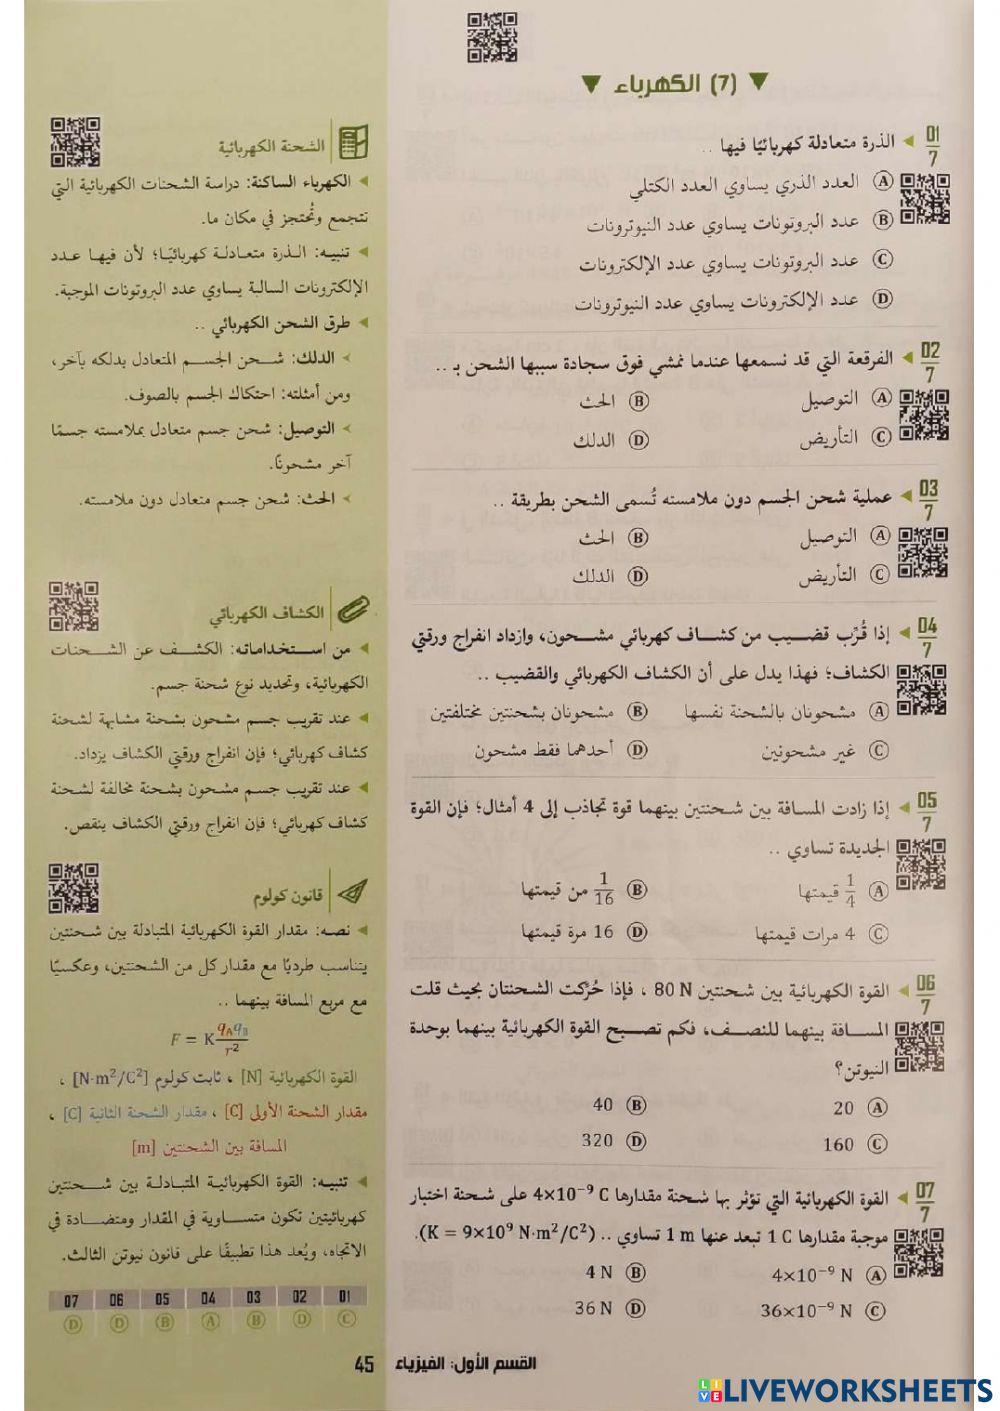 (7) الكهرباء
01/7 الذرة متعادلة كهربائيًا فيها ..
A العدد الذري يساوي العدد الكتلي
B عدد البروتونات يساوي عدد النيوترونات
C عدد البروتونات يساوي عدد الإلكترونات
D عدد الإلكترونات يساوي عدد النيوترونات
02/7 الفرقعة التي قد نسمعها عندما نمشي فوق سجادة سببها الشحن بـ ..
A التوصيل B الحث
C التأريض D الدلك
03/7 عملية شحن الجسم دون ملامسته تُسمى الشحن بطريقة ..
A التوصيل B الحث
C التأريض D الدلك
04/7 إذا قُرِّب قضيب من كشاف كهربائي مشحون، وازداد انفراج ورقتي
الكشاف؛ فهذا يدل على أن الكشاف الكهربائي والقضيب ..
A مشحونان بالشحنة نفسها B مشحونان بشحنتين مختلفتين
C غير مشحونين D أحدهما فقط مشحون
05/7 إذا زادت المسافة بين شحنتين بينهما قوة تجاذب إلى 4 أمثال؛ فإن القوة
الجديدة تساوي ..
A 1/4 قيمتها B 1/16 من قيمتها
C 4 مرات قيمتها D 16 مرة قيمتها
06/7 القوة الكهربائية بين شحنتين 80 N ، فإذا حُرِّكت الشحنتان بحيث قلت
المسافة بينهما للنصف، فكم تصبح القوة الكهربائية بينهما بوحدة
النيوتن؟
A 20 B 40
C 160 D 320
07/7 القوة الكهربائية التي تؤثر بها شحنة مقدارها 4×10⁻⁹ C على شحنة اختبار
موجبة مقدارها 1 C تبعد عنها 1 m تساوي .. (K = 9×10⁹ N·m²/C²).
A 4×10⁻⁹ N B 4 N
C 36×10⁻⁹ N D 36 N
الشحنة الكهربائية
الكهرباء الساكنة: دراسة الشحنات الكهربائية التي
تتجمع وتُحتجز في مكان ما.
تنبيه: الذرة متعادلة كهربائيًا؛ لأن فيها عدد
الإلكترونات السالبة يساوي عدد البروتونات الموجبة.
طرق الشحن الكهربائي ..
الدلك: شحن الجسم المتعادل بدلكه بآخر،
ومن أمثلته: احتكاك الجسم بالصوف.
التوصيل: شحن جسم متعادل بملامسته جسمًا
آخر مشحونًا.
الحث: شحن جسم متعادل دون ملامسته.
الكشاف الكهربائي
من استخداماته: الكشف عن الشحنات
الكهربائية، وتحديد نوع شحنة جسم.
عند تقريب جسم مشحون بشحنة مشابهة لشحنة
كشاف كهربائي؛ فإن انفراج ورقتي الكشاف يزداد.
عند تقريب جسم مشحون بشحنة مخالفة لشحنة
كشاف كهربائي؛ فإن انفراج ورقتي الكشاف ينقص.
قانون كولوم
نصه: مقدار القوة الكهربائية المتبادلة بين شحنتين
يتناسب طرديًا مع مقدار كل من الشحنتين، وعكسيًا
مع مربع المسافة بينهما ..
F = K qA qB / r²
القوة الكهربائية [N] ، ثابت كولوم [N·m²/C²] ،
مقدار الشحنة الأولى [C] ، مقدار الشحنة الثانية [C] ،
المسافة بين الشحنتين [m]
تنبيه: القوة الكهربائية المتبادلة بين شحنتين
كهربائيتين تكون متساوية في المقدار ومتضادة في
الاتجاه، ويُعد هذا تطبيقًا على قانون نيوتن الثالث.
07 06 05 04 03 02 01
D D B A B D C
القسم الأول: الفيزياء 45
LIVEWORKSHEETS